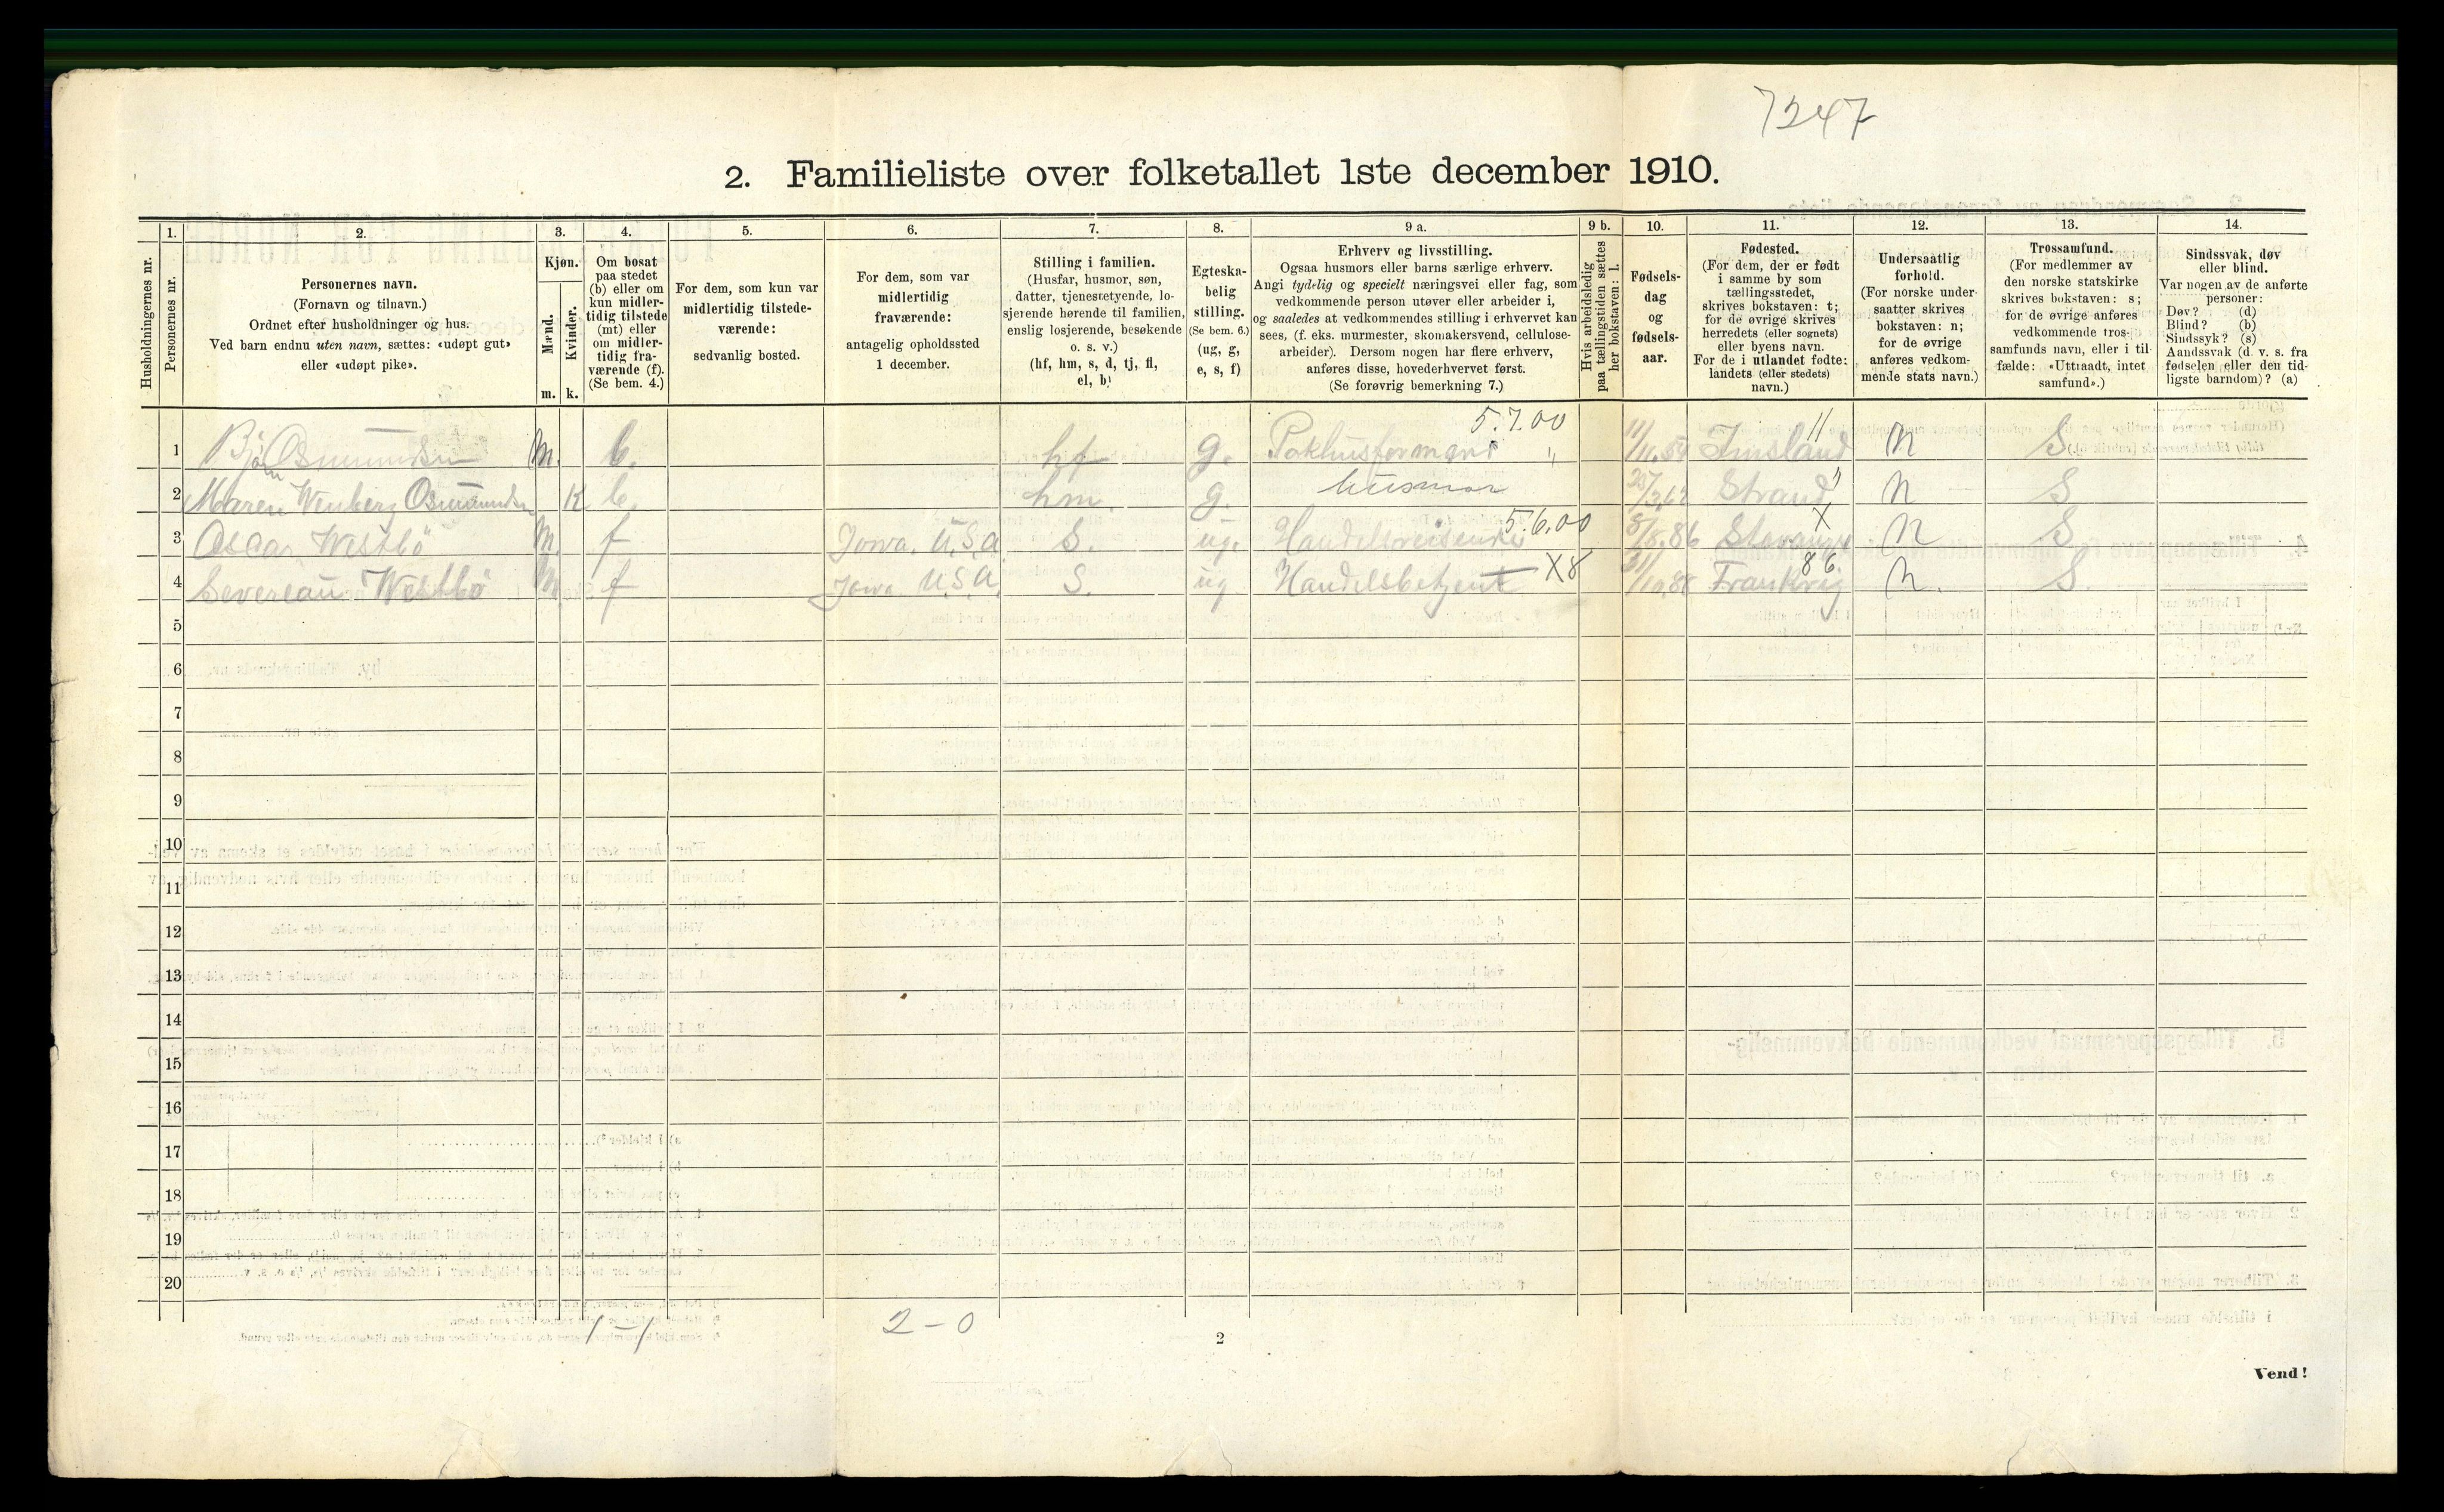 7247
2. Familieliste over folketallet 1ste december 1910.
1. 2. 3. 4. 5. 6. 7. 8. 9 a. 9 b. 10. 11. 12. 13. 14.
Husholdningernes nr.
Personernes nr.
Personernes navn.
(Fornavn og tilnavn.)
Ordnet efter husholdninger og hus.
Ved barn endnu uten navn, sættes: «udøpt gut»
eller «udøpt pike».
Kjøn.
Mænd.
Kvinder.
m. k.
Om bosat
paa stedet
(b) eller om
kun midler-
tidig tilstede
(mt) eller
om midler-
tidig fra-
værende (f).
(Se bem. 4.)
For dem, som kun var
midlertidig tilstede-
værende:
sedvanlig bosted.
For dem, som var
midlertidig
fraværende:
antagelig opholdssted
1 december.
Stilling i familien.
(Husfar, husmor, søn,
datter, tjenestetyende, lo-
sjerende hørende til familien,
enslig losjerende, besøkende
o. s. v.)
(hf, hm, s, d, tj, fl,
el, b)
Egteska-
belig
stilling.
(Se bem. 6.)
(ug, g,
e, s, f)
Erhverv og livsstilling.
Ogsaa husmors eller barns særlige erhverv.
Angi tydelig og specielt næringsvei eller fag, som
vedkommende person utøver eller arbeider i,
og saaledes at vedkommendes stilling i erhvervet kan
sees, (f. eks. murmester, skomakersvend, cellulose-
arbeider). Dersom nogen har flere erhverv,
anføres disse, hovederhvervet først.
(Se forøvrig bemerkning 7.)
Hvis arbeidsledig
paa tællingstiden sættes
her bokstaven: l.
Fødsels-
dag
og
fødsels-
aar.
Fødested.
(For dem, der er født
i samme by som
tællingsstedet,
skrives bokstaven: t;
for de øvrige skrives
herredets (eller sognets)
eller byens navn.
For de i utlandet fødte:
landets (eller stedets)
navn.)
Undersaatlig
forhold.
(For norske under-
saatter skrives
bokstaven: n;
for de øvrige
anføres vedkom-
mende stats navn.)
Trossamfund.
(For medlemmer av
den norske statskirke
skrives bokstaven: s;
for de øvrige anføres
vedkommende tros-
samfunds navn, eller i til-
fælde: «Uttraadt, intet
samfund».)
Sindssvak, døv
eller blind.
Var nogen av de anførte
personer:
Døv? (d)
Blind? (b)
Sindssyk? (s)
Aandssvak (d. v. s. fra
fødselen eller den tid-
ligste barndom)? (a)
5.7.00 11
1 Bjørn Osmundsen m. b. hf g. Pakhusformand " 11/11.54 Imsland n S
2 Maren Wenberg Osmundsen K b. hm. g. husmor Strand n S
5.6.00 X
3 Oscar Westbö M. f Jowa. U.S.A S. ug. Handelsreisende 86 Stavanger n S
4 Severeau Westbö M. f Jowa U.S.A. S. ug Handelsbetjent X8 31/10.88 86 Frankrig n. S.
5
6
7
8
9
10
11
12
13
14
15
16
17
18
19
20
1-1
2-0
2
Vend!